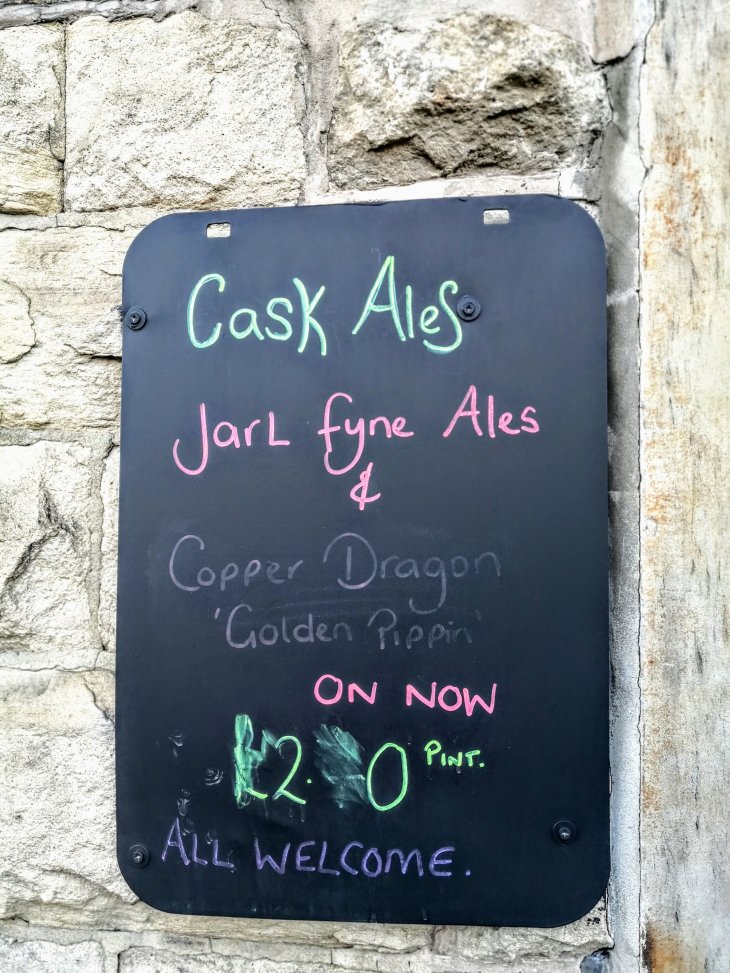 Cask Ales
Jarl fyne Ales
&
Copper Dragon
'Golden Pippin'
ON NOW
£2. 0 PINT.
ALL WELCOME.